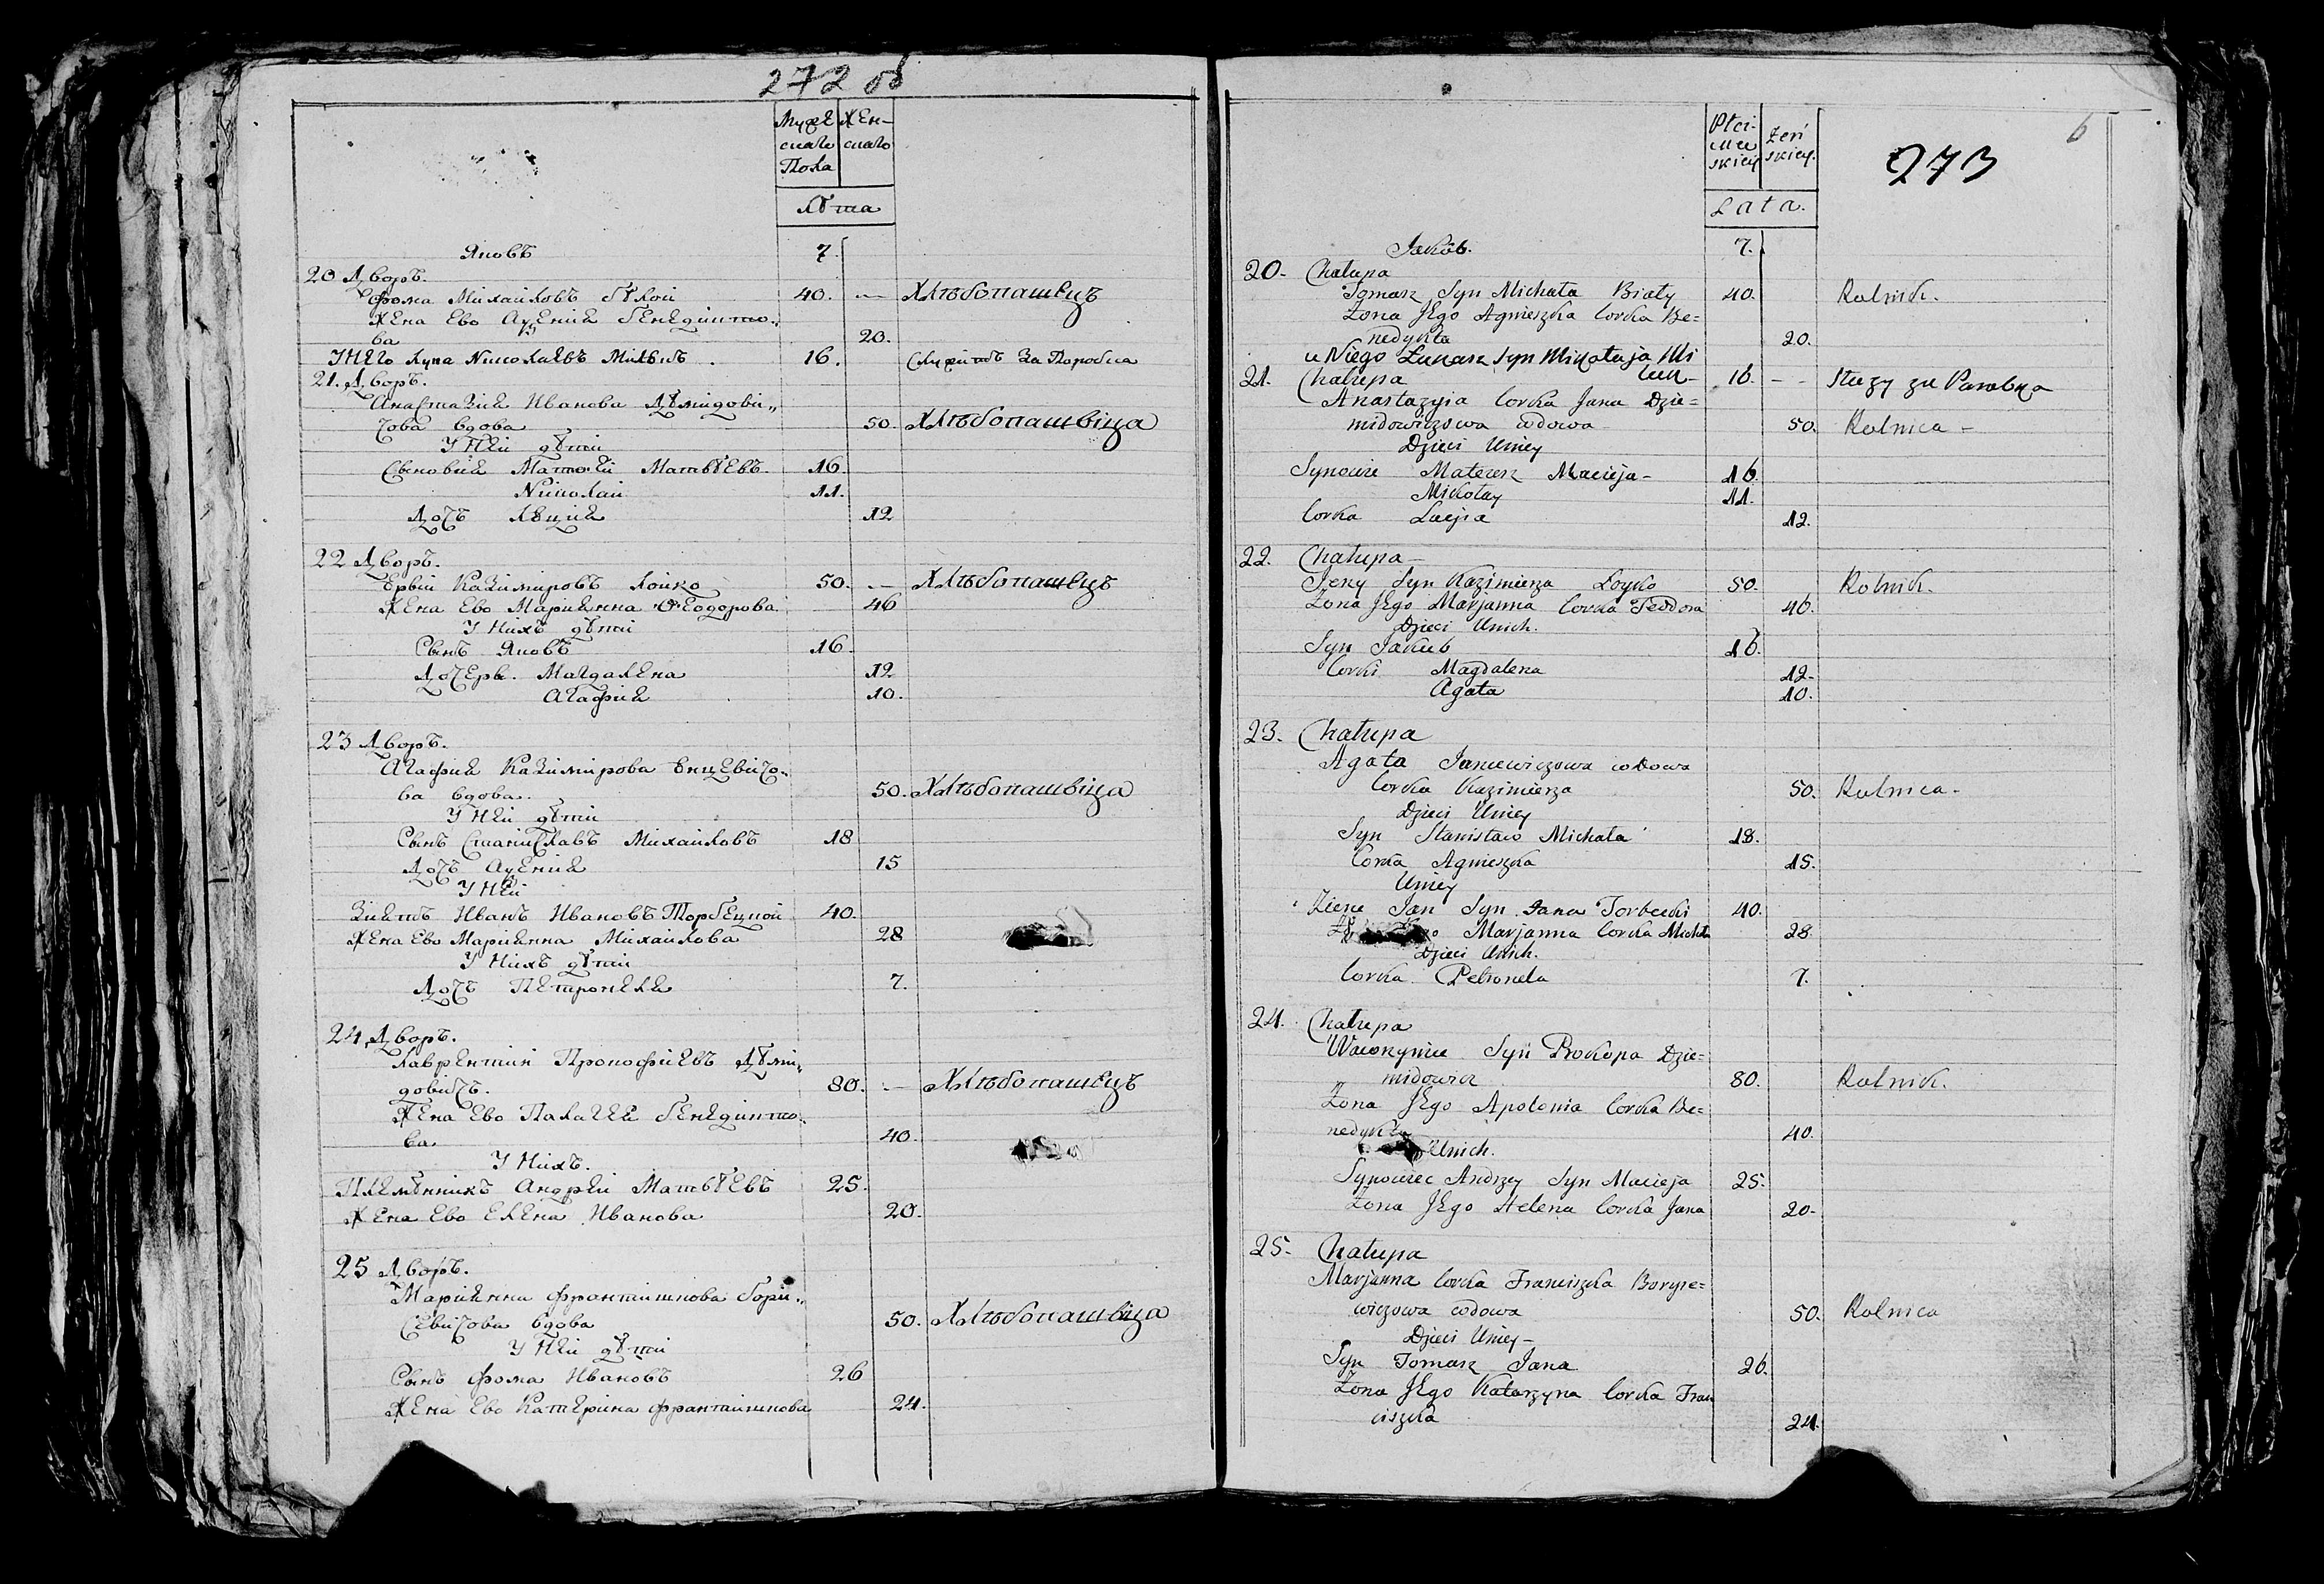 272 об
Мужескаго Пола
Женскаго
лѣта
Яковъ 7.
20 Дворъ.
Фома Михайловъ Бѣлой 40. — Хлѣбопашецъ
Жена Ево Агнеия Бенедикто„
ва 20.
У Него Лука Николаевъ 16. Служитъ За Паробка
21. Дворъ.
Анастазия Иванова Дѣмидови„
чова вдова 50. Хлѣбопашвица
У Ней дѣти
Сыновия Матвѣевъ 16.
Николай 11.
Дочь Люция 12
22 Дворъ.
Казимировъ Лойко 50. — Хлѣбопашецъ
Жена Ево Мариянна Феодорова 46
У Нихъ дѣти
Сынъ Яковъ 16.
Дочери Магдалена 12
Агафия 10.
23 Дворъ.
Агафия Казимирова Енцевичо„
ва вдова. 50. Хлѣбопашвица
У Ней дѣти
Сынъ Станиславъ Михайловъ 18
Дочь 15
У Ней
Зиять Иванъ Ивановъ Торбецкой 40.
Жена Ево Мариянна Михайлова 28
У Нихъ дѣти
Дочь Петронеля 7.
24 Дворъ.
Лаврентий Прокофиевъ Дѣми„
довичъ. 80. — Хлѣбопашецъ
Жена Ево Палагея Бенедикто„
ва 40.
У Нихъ.
Племѣнникъ Андрей Матвѣевъ 25.
Жена Ево Елена Иванова 20.
25 Дворъ.
Мариянна Франтишкова Бори„
севичова вдова 50. Хлѣбопашвица
У Ней дѣти
Сынъ Фома Ивановъ 26
Жена Ево Катерина Франтишкова 24.
6
273
Płci męskiey
żeńskiey.
Lata.
Jakób. 7.
20. Chałupa
Tomasz Syn Michała Biały 40. Rolnik.
Żona Jego Agnieszka Corka Be=
nedykta 20.
u Niego Łukasz Syn Mikołaja
21. Chałupa 16. - - Służy za Parobka
Anastazyia Corka Jana Dzie=
midowiczowa wdowa 50. Rolnica -
Dzieci Uniey
Synowie Mateusz Macieja - 16.
Mikołay 11.
Corka Lucja 12.
22. Chałupa
Jerzy Syn Kazimierza Łoyko 50. Rolnik.
Żona Jego Marjanna Corka Teodora 46.
Dzieci Unich.
Syn Jakub 16.
Corki Magdalena 12.
Agata 10.
23. Chałupa
Agata Janiewiczowa wdowa
Corka Kazimierza 50. Rolnica.
Dzieci Uniey
Syn Stanisław Michała 18.
Corka Agnieszka 15.
Uniey
Zienc Jan Syn Jana Torbecki 40.
Marjanna Corka Michała 28.
Dzieci Unich.
Corka Petronela 7.
24. Chałupa
Wawrzyniec Syn Prokopa Dzie=
midowicz 80. Rolnik.
Żona Jego Apolonia Corka Be=
nedykta 40.
Unich.
Synowiec Andrzey Syn Macieja 25.
Żona Jego Helena Corka Jana 20.
25. Chałupa
Marjanna Corka Franciszka Boryse=
wiczowa wdowa 50. Rolnica
Dzieci Uniey -
Syn Tomasz Jana 26.
Żona Jego Katarzyna Corka Fran
ciszka 24.